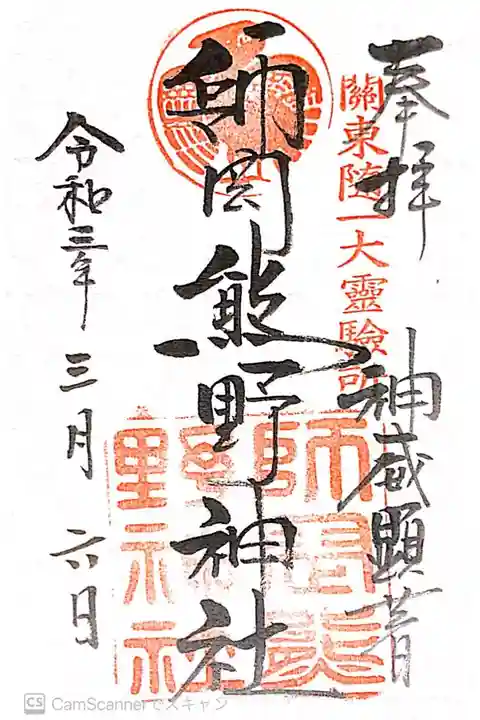 奉拝
關東随一大靈験所
神威顕著
師岡熊野神社
令和三年三月六日
CS CamScannerでスキャン